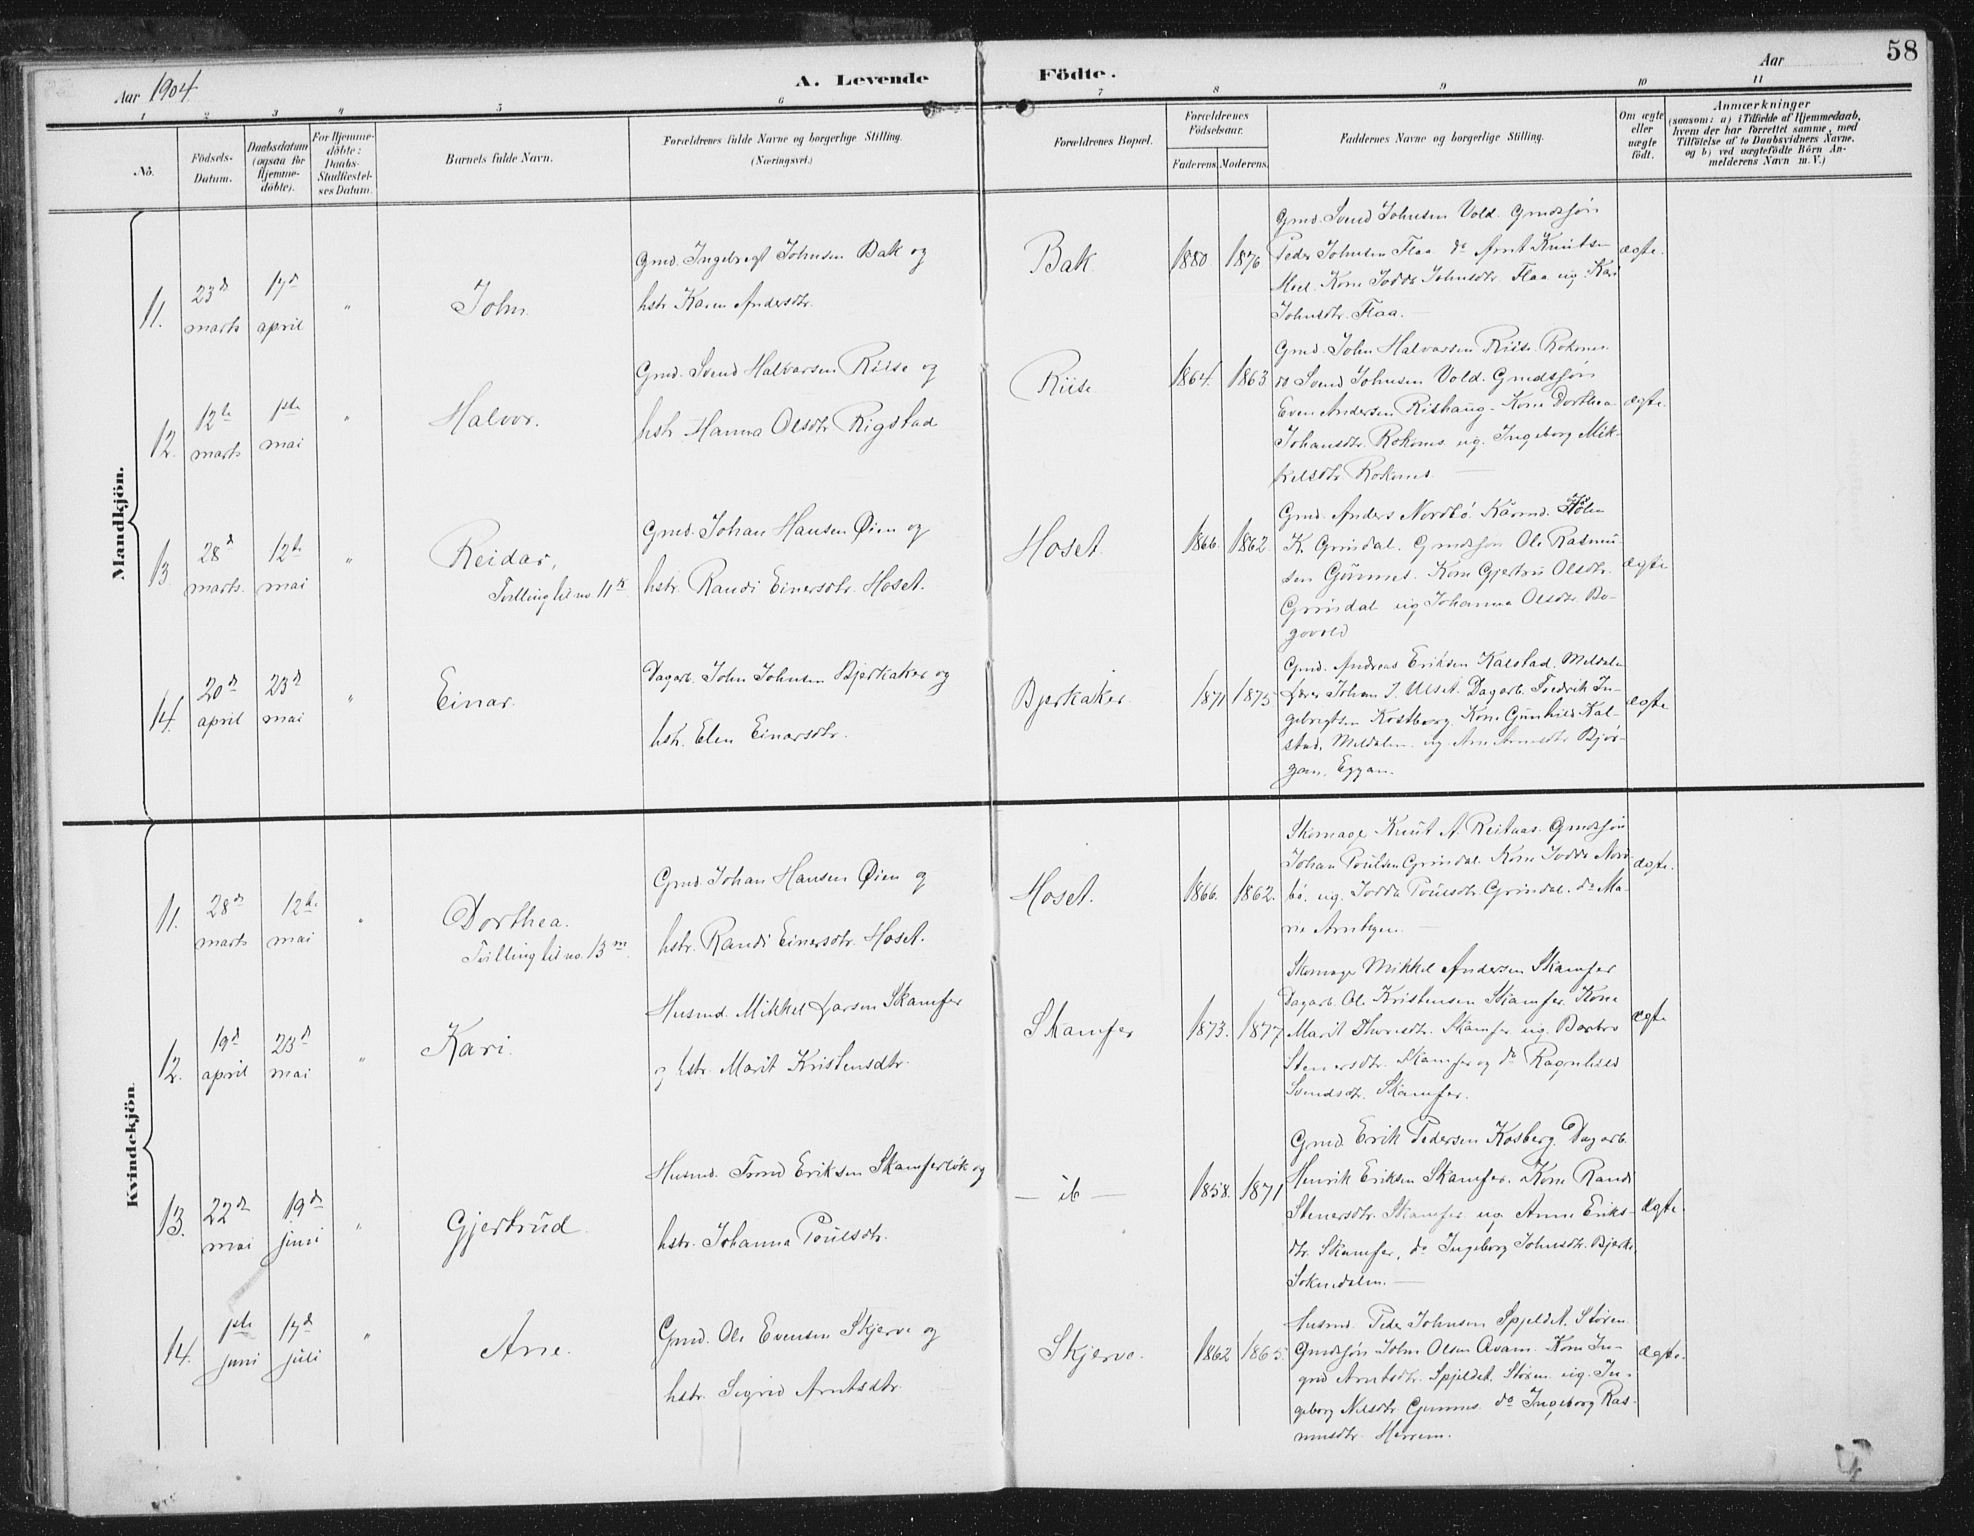 Aar 1904
A. Levende Födte.
Aar
58
1 2 3 4 5 6 7 8 9 10 11
No.
Födsels-Datum.
Daabsdatum (ogsaa for Hjemmedöbte).
For Hjemmedöbte: Daabs-Stadfæstelses Datum.
Barnets fulde Navn.
Forældrenes fulde Navne og borgerlige Stilling. (Næringsvei.)
Forældrenes Bopæl.
Forældrenes Födselsaar.
Faderens. Moderens.
Faddernes Navne og borgerlige Stilling.
Om ægte eller uægte født.
Anmærkninger
(saasom: a) i Tilfælde af Hjemmedaab,
hvem der har forrettet samme, med
Tilföielse af to Daabsvidners Navne,
og b) ved uægtefödte Börn An-
melderens Navn m. V.)
Mandkjön.
11. 23d marts 17d april " John
Gmd. Ingebrigt Johnsen Bak og
hstr. Karen Andersdtr.
Bak 1880. 1876
Gmd. Svend Johnsen Vold. Gmdssön
Peder Johnsen Flaa do Arnt Knutsen
Kone Jodda Johnsdtr. Flaa ug. Kari
Johnsdtr. Flaa.
ægte.
12. 12te marts 1ste mai " Halvor.
Gmd. Svend Halvorsen Riise og
hstr. Hanna Olsdtr Rigstad
Riise 1864. 1863
Gmd. John Halvorsen Riise. Rokones
do Svend Johnsen Vold. Gmdssön
Even Andersen Rishaug. Kone Dorthea
Johansdtr. Rokones ug. Ingeborg Mik-
kelsdtr Rokones
ægte.
13. 28d marts. 12te mai " Reidar,
Tvilling til no. 11 k
Gmd. Johan Hansen Øien og
hstr. Randi Einersdtr. Hoset.
Hoset 1866. 1862.
Gmd. Anders Nordbö Kaarmd.
K. Grindal. Gmdssön Ole Rasmu-
sen Gunnes. Kone Gjertru Olsdtr.
Grindal ug Johanna Olsdtr. Bo-
govold
ægte
14. 20d april 23d mai " Einar.
Dagarb. John Johnsen Bjerkaker og
hstr. Elen Einarsdtr.
Bjerkaker. 1871 1875
Gmd. Andreas Eriksen Kalstad. Meldalen
Lærer Johan J. Ulset. Dagarb. Fredrik In-
gebrigtsen Kostberg. Kone Gunhild Kal-
stad, Meldalen. ug Arnsdtr Björ-
gan. Eggan.
ægte
Kvindekjön.
11. 28d marts 12te mai " Dorthea.
Tvilling til no. 13 m.
Gmd. Johan Hansen Øien og
hstr. Randi Einersdtr. Hoset.
Hoset. 1866. 1862.
Skomager Knut A. Reitaas. Gmdssön
Johan Poulsen Grindal. Kone Jodda Nord-
bö. ug. Jodda Poulsdtr. Grindal. do Ma-
rie
ægte.
12. 19d april 23d mai " Kari.
Husmd. Mikkel Larsen Skamfer
og hstr. Marit Kristensdtr.
Skamfer 1873. 1877
Skomager Mikkel Andersen Skamfer
Dagarb. Ole Kristensen Skamfer. Kone
Marit Skamfer ug. Barbro
Stenersdtr. Skamfer og do Ragnhild
Svendsdtr. Skamfer.
ægte
13. 22d mai 19d juni " Gjertrud.
Husmd. Trond Eriksen Skamferlök og
hstr. Johanna Poulsdtr.
— ib — 1858. 1871
Gmd. Erik Pedersen Kosberg. Dagarb.
Henrik Eriksen Skamfer. Kone Randi
Stenersdtr. Skamfer ug. Anne Eriks-
dtr. Skamfer, do Ingeborg Johnsdtr. Bjerke,
Soknedalen.
ægte.
14. 1ste juni 17d juli " Ane.
Gmd. Ole Evensen Skjerve og
hstr. Sigrid Arntsdtr.
Skjerve. 1862 1865.
Husmd. Peder Johnsen Spjeldet. Stören
Gmdssön John Olsen Kone In-
grid Arntsdtr. Spjeldet. Stören. ug. In-
geborg Nilsdtr Gunnes. do Ingeborg Ras-
musdtr. Herrem.
ægte.